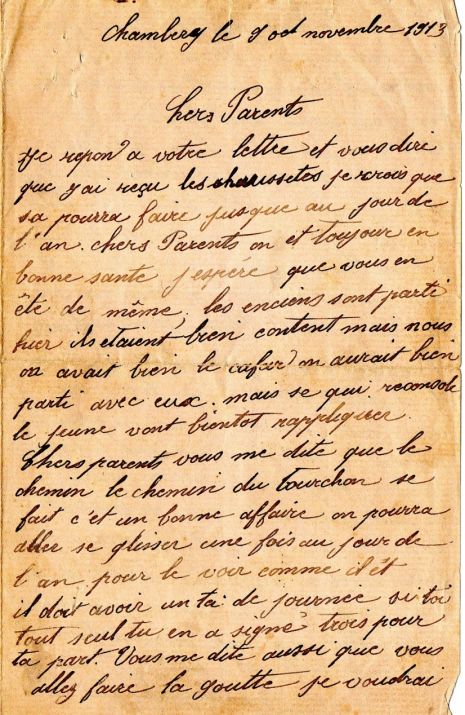 Chambery le 9 novembre 1913
Chers Parents
Je repond a votre lettre et vous dire
que j'ai reçu les chaussetes je crois que
sa pourra faire jusque au jour de
l'an. chers Parents on et toujour en
bonne santé j'espére que vous en
été de même, les enciens sont parti
hier ils etaient bien content mais nous
on avait bien le cafard on aurait bien
parti avec eux. mais se qui reconsole
le jeune vont bientot rappliquer.
Chers parents vous me dite que le
chemin le chemin du tourchon se
fait c'et un bonne affaire on pourra
aller se glisser une fois au jour de
l'an pour le voir comme il ét
il doit avoir un ta: de journee si toi
tout seul tu en a signé trois pour
ta part. Vous me dite aussi que vous
allez faire la goutte je voudrai